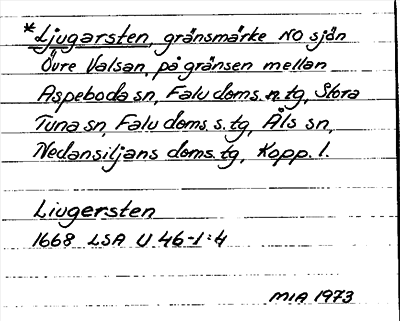 *Ljugarsten, gränsmärke NO sjön
Övre Valsan, på gränsen mellan
Aspeboda sn, Falu doms. n. tg, Stora
Tuna sn, Falu doms. s. tg, Åls sn,
Nedansiljans doms. tg, Kopp. l.
Liugersten
1668 LSA U 46-1:4
MIA 1973